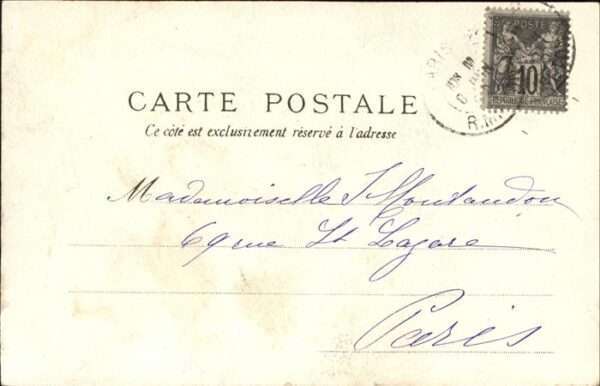 POSTE
10
REPUBLIQUE FRANÇAISE
CARTE POSTALE
Ce côté est exclusivement réservé à l'adresse
Mademoiselle J Montandon
69 rue St Lazare
Paris